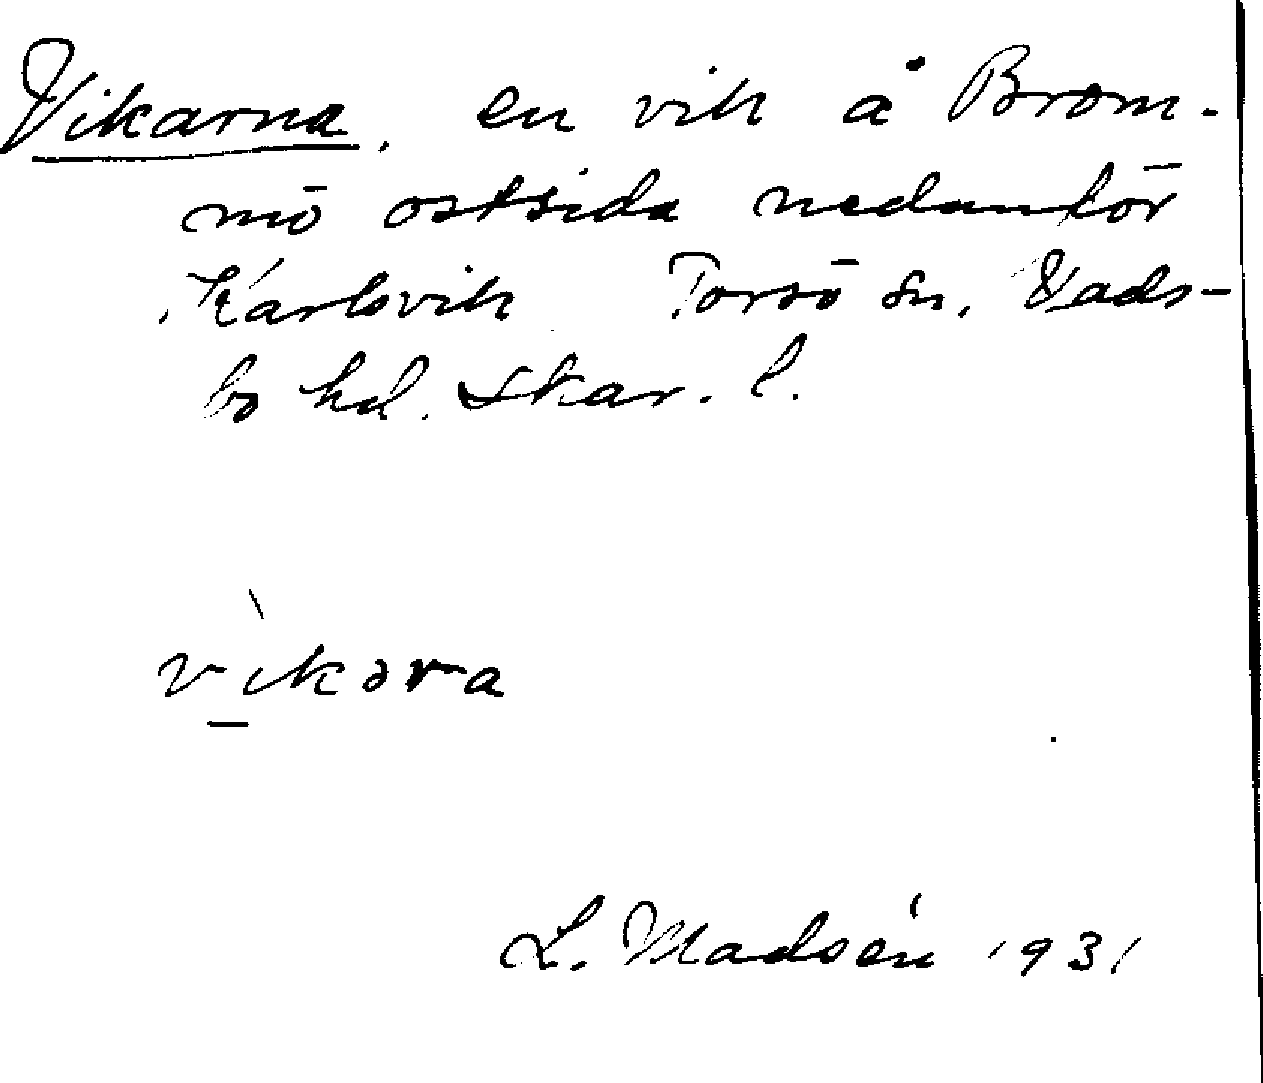 Vikarna, en vik å Brom-
mö ostsida nedanför
Karlsvik Torsö sn, Vads-
bo hd. Skar. l.
v̀i̱kəra
L. Madsén 1931